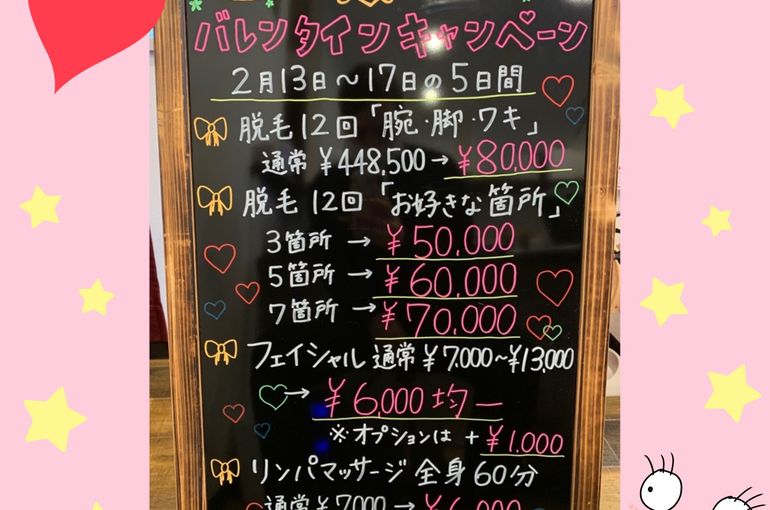 バレンタインキャンペーン
2月13日〜17日の5日間
脱毛12回「腕・脚・ワキ」
通常¥448,500→¥80,000
脱毛12回「お好きな箇所」
3箇所→¥50,000
5箇所→¥60,000
7箇所→¥70,000
フェイシャル 通常¥7,000〜¥13,000
→¥6,000均一
※オプションは+¥1,000
リンパマッサージ 全身60分
通常¥7000→¥6,000